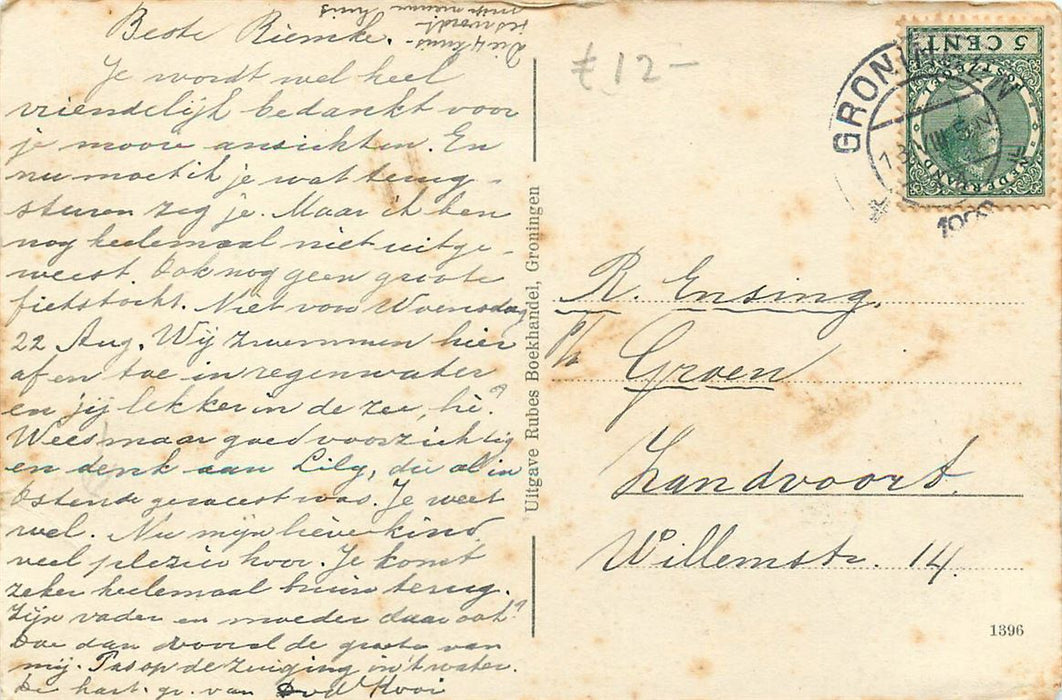 Beste Riemke.
Je wordt wel heel
vriendelijk bedankt voor
je mooie ansichten. En
nu moet ik je wat terug-
sturen zeg je. Maar ik ben
nog heelemaal niet uitge-
weest. Ook nog geen groote
fietstocht. Niet voor Woensdag
22 Aug. Wij zwemmen hier
af en toe in regenwater
en jij lekker in de zee, hè?
Wees maar goed voorzichtig
en denk aan Lily, die al in
Ostende geweest was. Je weet
wel. Nu mijn lieve kind
veel plezier hoor. Je komt
zeker heelemaal bruin terug.
Zijn vader en moeder daar ook?
Doe dan vooral de groete van
mij. Pas op de zuiging in 't water.
De hart. gr. van Kooi
mijn nieuwe huis
Uitgave Rubes Boekhandel, Groningen
£ 12-
GRONINGEN
VIII
5 CENT
NEDERLAND
R. Ensing.
p/a Groen
Zandvoort.
Willemstr. 14.
1396